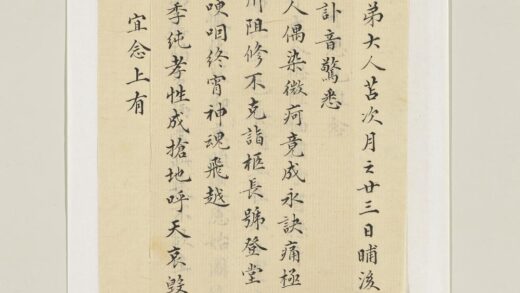 弟大人苫次月之廿三日晡後
訃音驚悉
人偶染微疴竟成永訣痛極
川阻修不克詣柩長號登堂
哽咽終宵神魂飛越
季純孝性成搶地呼天哀毀
宜念上有